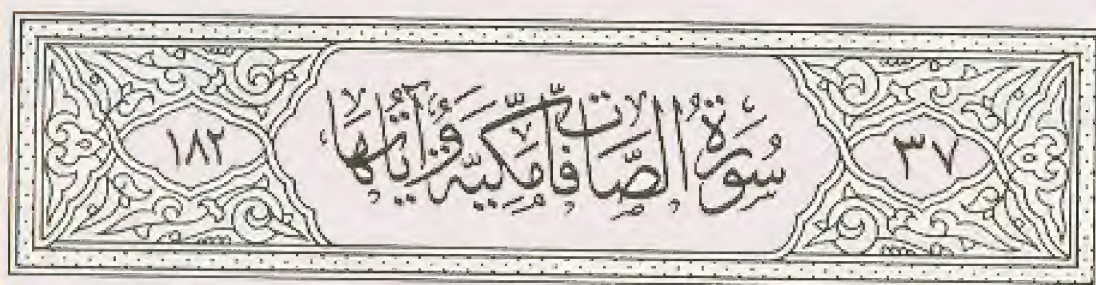 ٣٧
سُورَةُ الصَّافَّاتِ مَكِّيَّة وَآيَاتُهَا
١٨٢